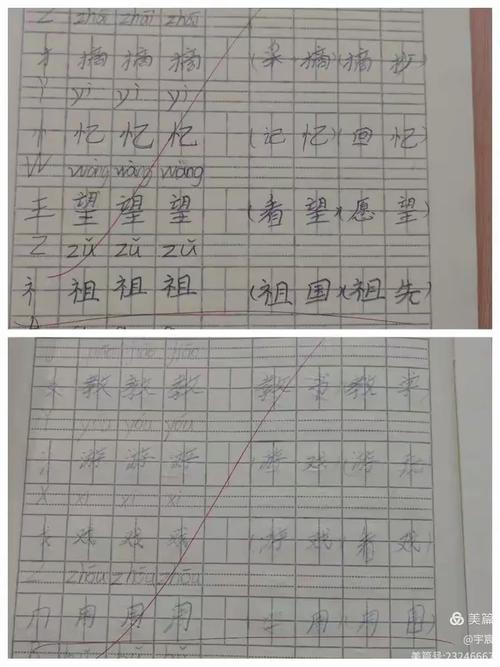 Z zhāi zhāi zhāi
扌 摘 摘 摘 (采 摘)(摘 抄)
Y yì yì yì
忄 忆 忆 忆 (记 忆)(回 忆)
W wàng wàng wàng
王 望 望 望 (看 望)(愿 望)
Z zǔ zǔ zǔ
礻 祖 祖 祖 (祖 国)(祖 先)
教 教 教 教 书 教 学
Y yóu yóu yóu
氵 游 游 游 游 戏 (游
X xì xì xì
戏 戏 戏 (游 戏)(看 戏)
Z zhōu zhōu zhōu
美篇
@宇宸
美篇号:23246667